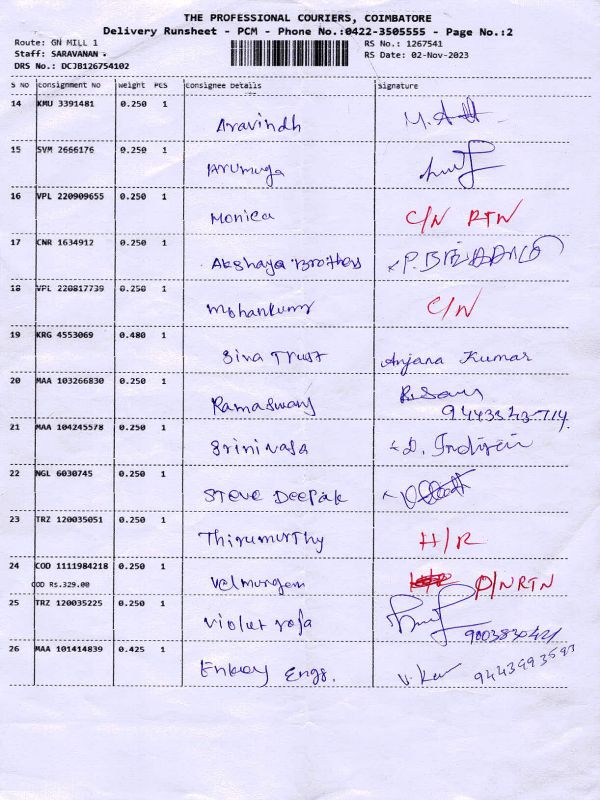 THE PROFESSIONAL COURIERS, COIMBATORE
Delivery Runsheet - PCM - Phone No.:0422-3505555 - Page No.:2
Route: GN MILL 1
Staff: SARAVANAN .
DRS No.: DCJB126754102
RS No.: 1267541
RS Date: 02-Nov-2023
S No Consignment No Weight PCS Consignee Details Signature
14 KMU 3391481 0.250 1
Aravindh
15 SVM 2666176 0.250 1
Arumuga
16 VPL 220909655 0.250 1
Monica C/N RTN
17 CNR 1634912 0.250 1
Akshaya Brothers
18 VPL 220817739 0.250 1
Mohankumr C/N
19 KRG 4553069 0.480 1
Siva Trust Anjana Kumar
20 MAA 103266830 0.250 1
Ramaswamy
21 MAA 104245578 0.250 1
Srinivasa
22 NGL 6030745 0.250 1
Steve Deepak
23 TRZ 120035051 0.250 1
Thirumurthy H/R
24 COD 1111984218 0.250 1
COD Rs.329.00 Velmurgem D/N RTN
25 TRZ 120035225 0.250 1
Violet roja 9003830421
26 MAA 101414839 0.425 1
Enkay Engs. 9443993593